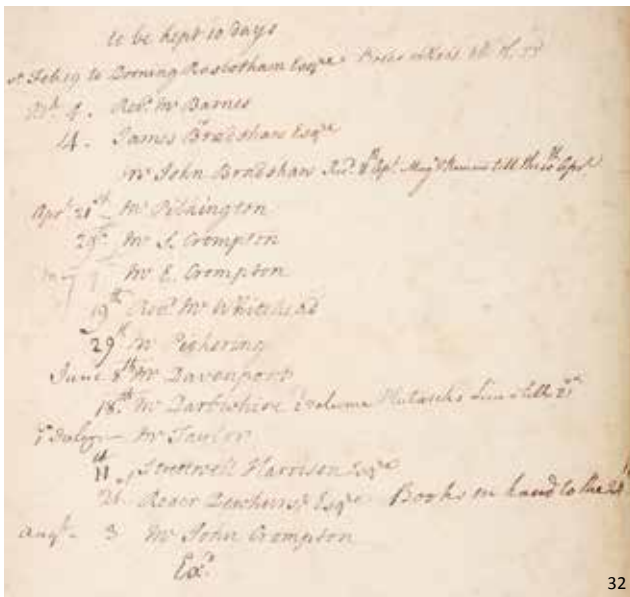 to be kept 10 days
Feb 19 to Dorning Rasbotham Esqre
4. Revd. Mr Barnes
14. James Bradshaw Esqre
Mr John Bradshaw Recd. till the 10th Aprl
Aprl 21st - Mr Pilkington
29th Mr S. Crompton
Mr E. Crompton
19th Revd. Mr Whitehead
29th Mr Pickering
June 8th Mr Davenport
18th Mr Darbishire till 21st
1st July - Mr Taylor
11th Streetwell Harrison Esqre
21. Esqre Books in hand to the 24
Augt. 3 Mr John Crompton
Exd.
32